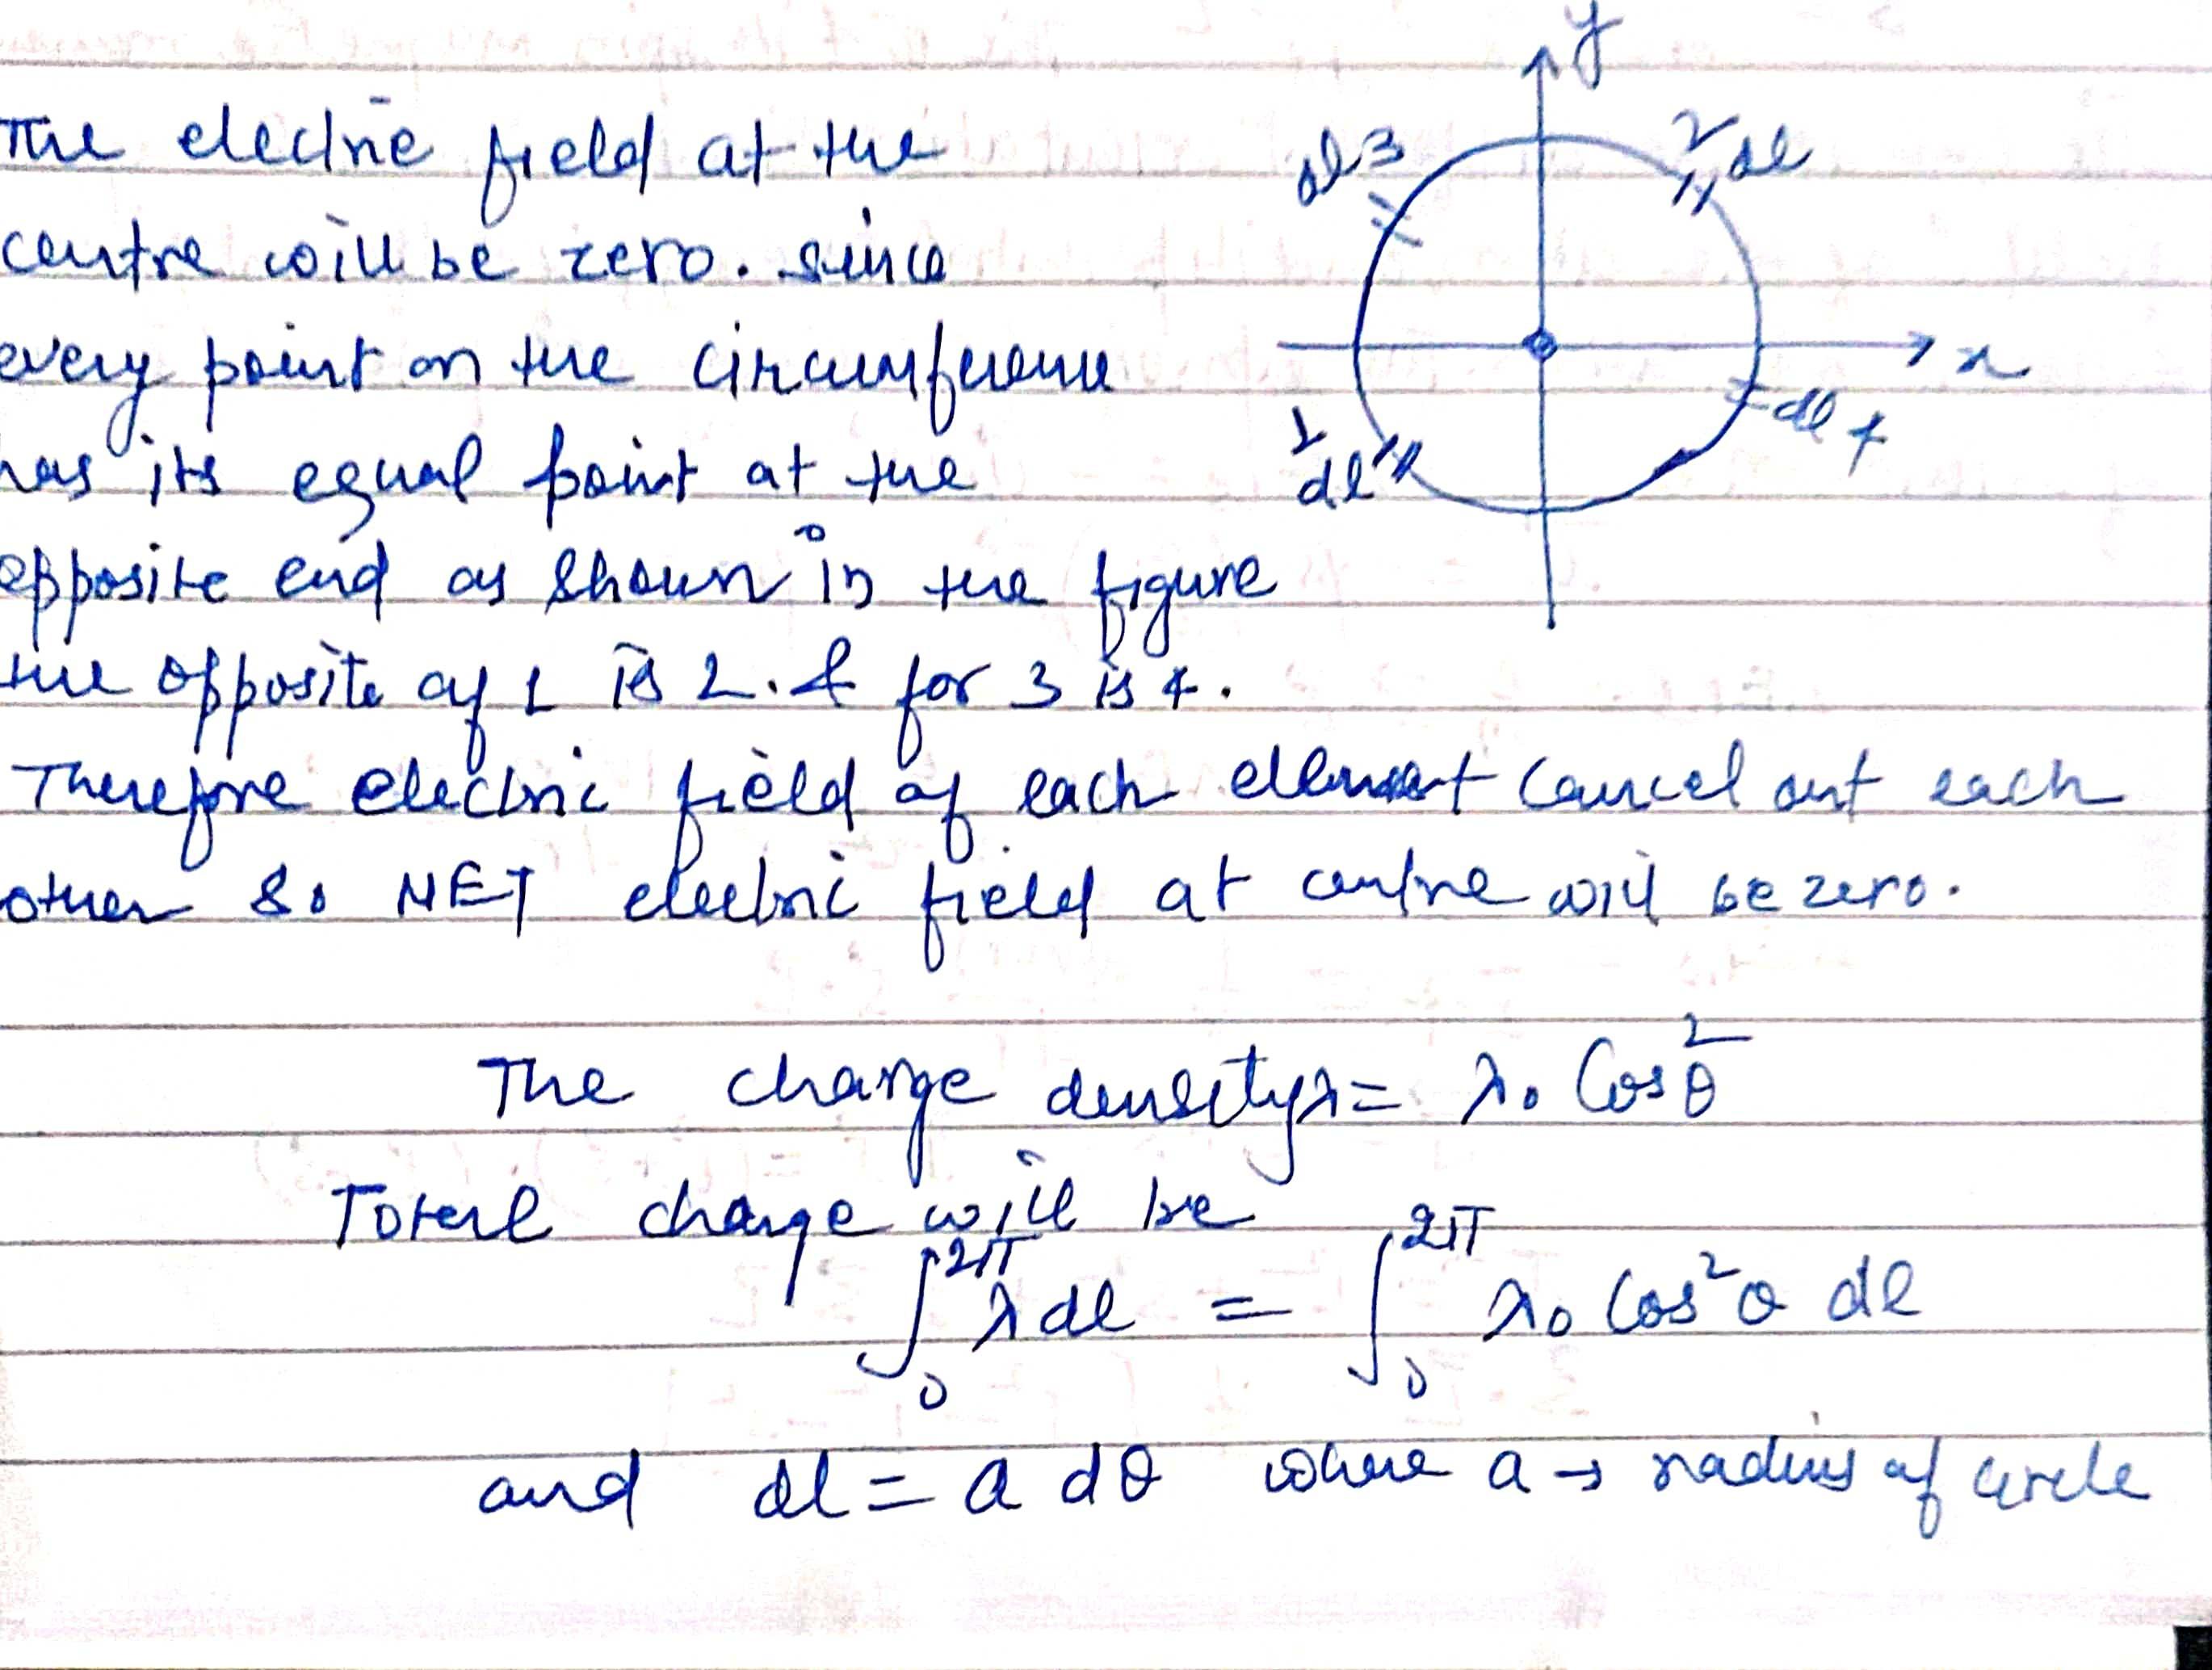 y
The electric field at the
dl 3
2 dl
centre will be zero. since
every point on the circumference
x
dl 4
has its equal point at the
1 dl
opposite end as shown in the figure
the opposite of 1 is 2. & for 3 is 4.
Therefore electric field of each element cancel out each
other so NET electric field at centre will be zero.
The charge density λ = λ₀ Cos²θ
Total charge will be
∫₀^2π λ dl = ∫₀^2π λ₀ Cos²θ dl
and dl = a dθ where a → radius of circle